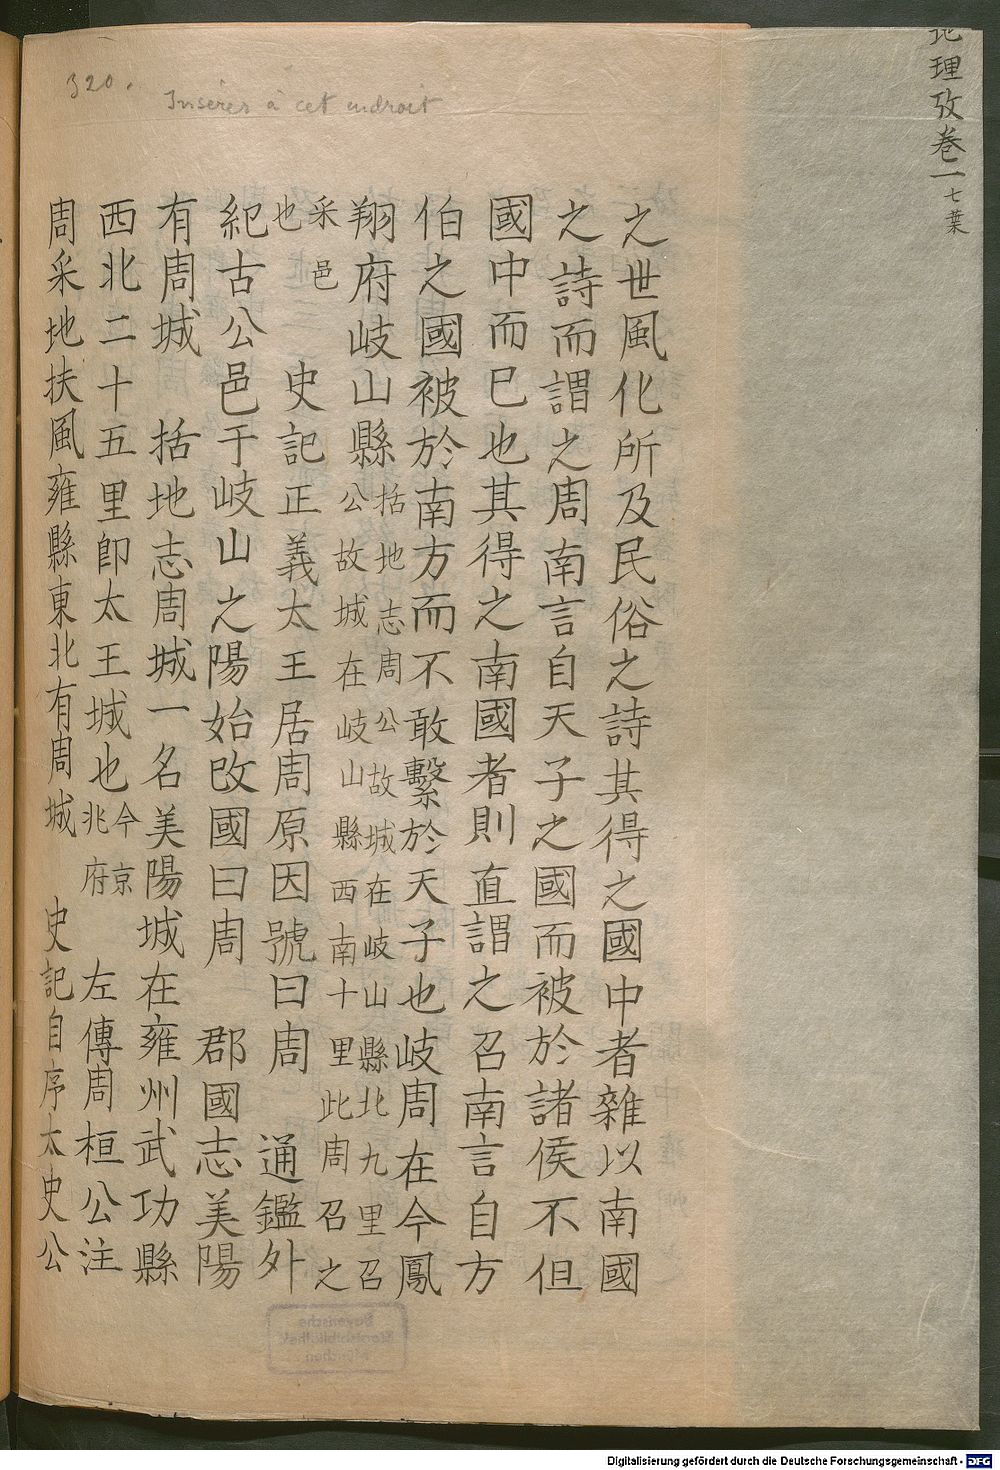 320.
Inserer à cet endroit
地理攷卷一 七葉
之世風化所及民俗之詩其得之國中者雜以南國
之詩而謂之周南言自天子之國而被於諸侯不但
國中而已也其得之南國者則直謂之召南言自方
伯之國被於南方而不敢繫於天子也岐周在今鳳
翔府岐山縣括地志周公故城在岐山縣北九里召
公故城在岐山縣西南十里此周召之
采邑
也 史記正義太王居周原因號曰周 通鑑外
紀古公邑于岐山之陽始改國曰周 郡國志美陽
有周城 括地志周城一名美陽城在雍州武功縣
西北二十五里卽太王城也今京
兆府 左傳周桓公注
周采地扶風雍縣東北有周城 史記自序太史公
Bayerische
Staatsbibliothek
München
Digitalisierung gefördert durch die Deutsche Forschungsgemeinschaft - DFG